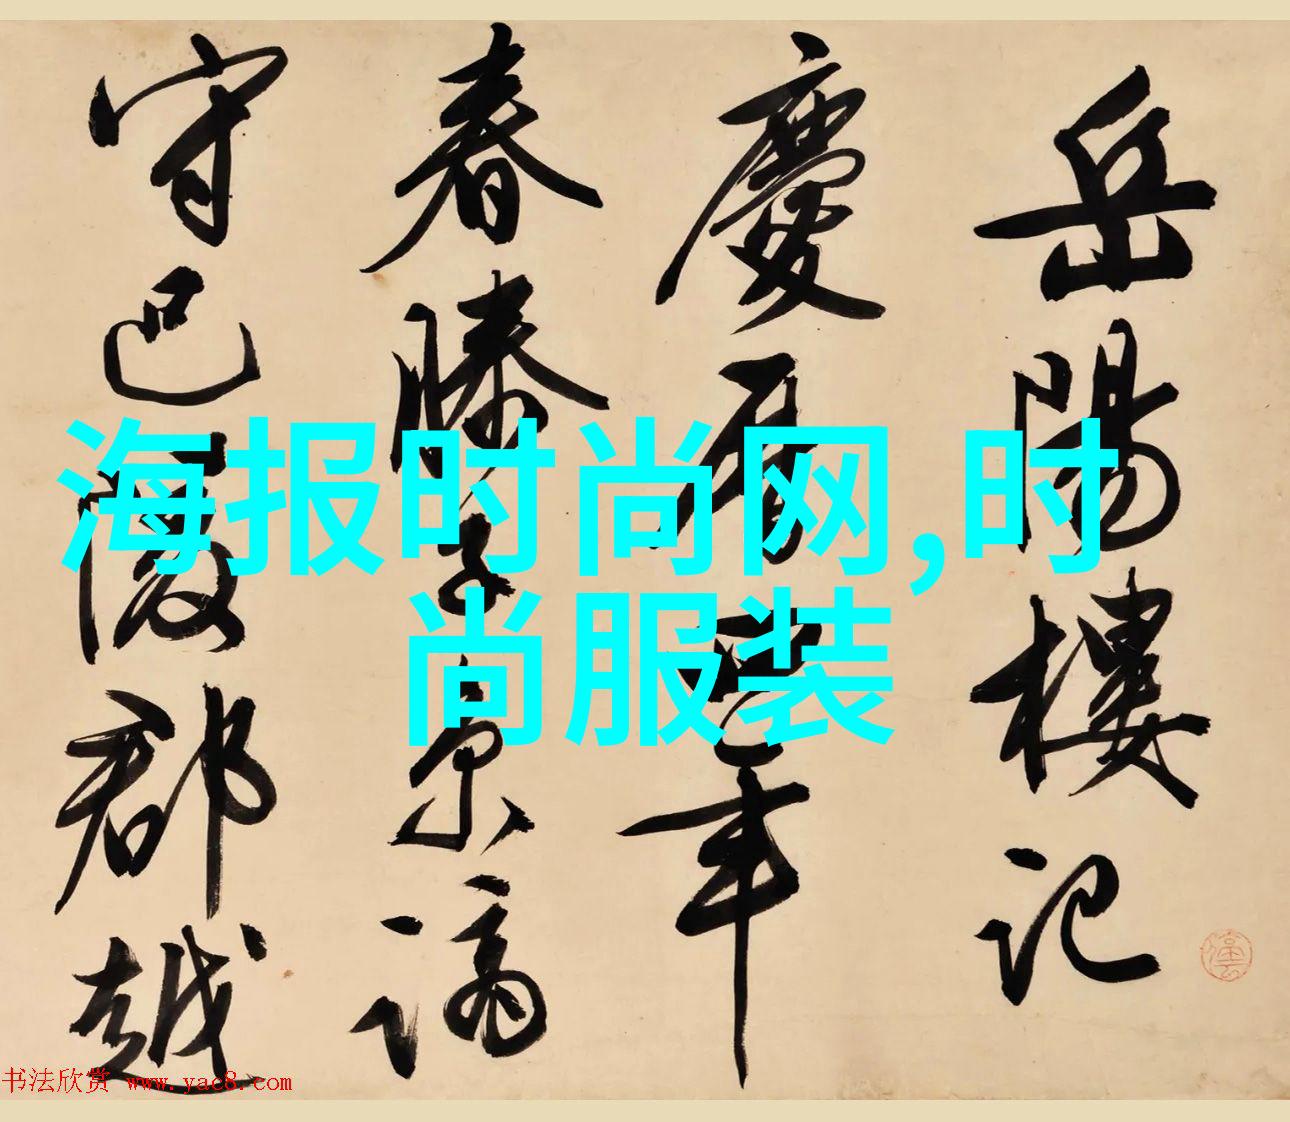 岳陽樓記
慶曆四年
春滕子京謫
守巴陵郡越
海报时尚网,时
尚服装
书法欣赏 www.yac8.com